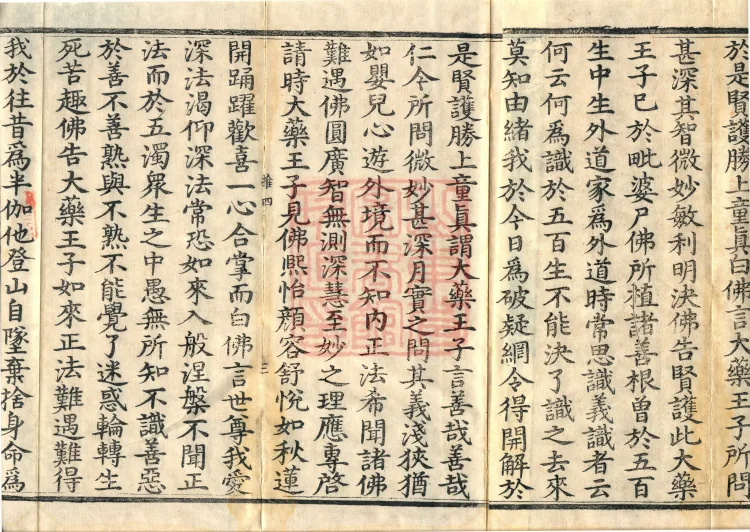 於是賢護勝上童真白佛言大藥王子所問
甚深其智微妙敏利明決佛告賢護此大藥
王子已於毗婆尸佛所植諸善根曾於五百
生中生外道家為外道時常思識義識者云
何云何為識於五百生不能決了識之去來
莫知由緒我於今日為破疑網令得開解於
是賢護勝上童真謂大藥王子言善哉善哉
仁今所問微妙甚深月實之問其義淺狹猶
如嬰兒心遊外境而不知內正法希聞諸佛
難遇佛圓廣智無測深慧至妙之理應專啓
請時大藥王子見佛熙怡顏容舒悅如秋蓮
開踊躍歡喜一心合掌而白佛言世尊我愛
深法渴仰深法常恐如來入般涅槃不聞正
法而於五濁眾生之中愚無所知不識善惡
於善不善熟與不熟不能覺了迷惑輪轉生
死苦趣佛告大藥王子如來正法難遇難得
我於往昔為半伽他登山自墜棄捨身命為